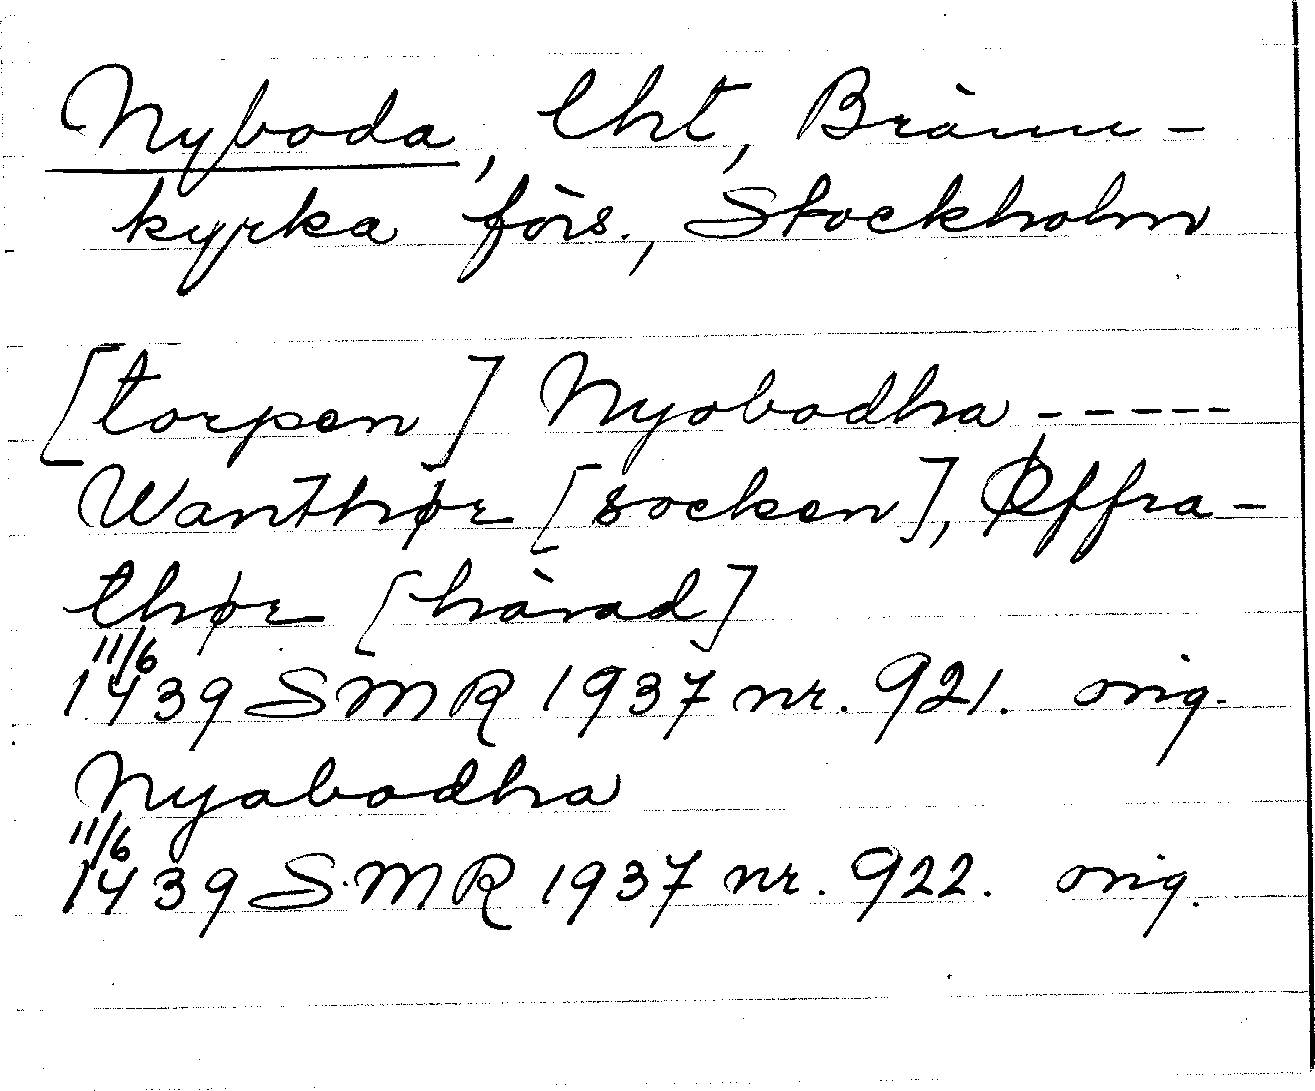 Nyboda, lht, Bränn-
kyrka förs., Stockholm
[torpen] Nyobodha -----
Wanthør [socken], Øffra-
thør [härad]
11/6
1439 SMR 1937 nr. 921. orig.
Nyabodha
11/6
1439 SMR 1937 nr. 922. orig.